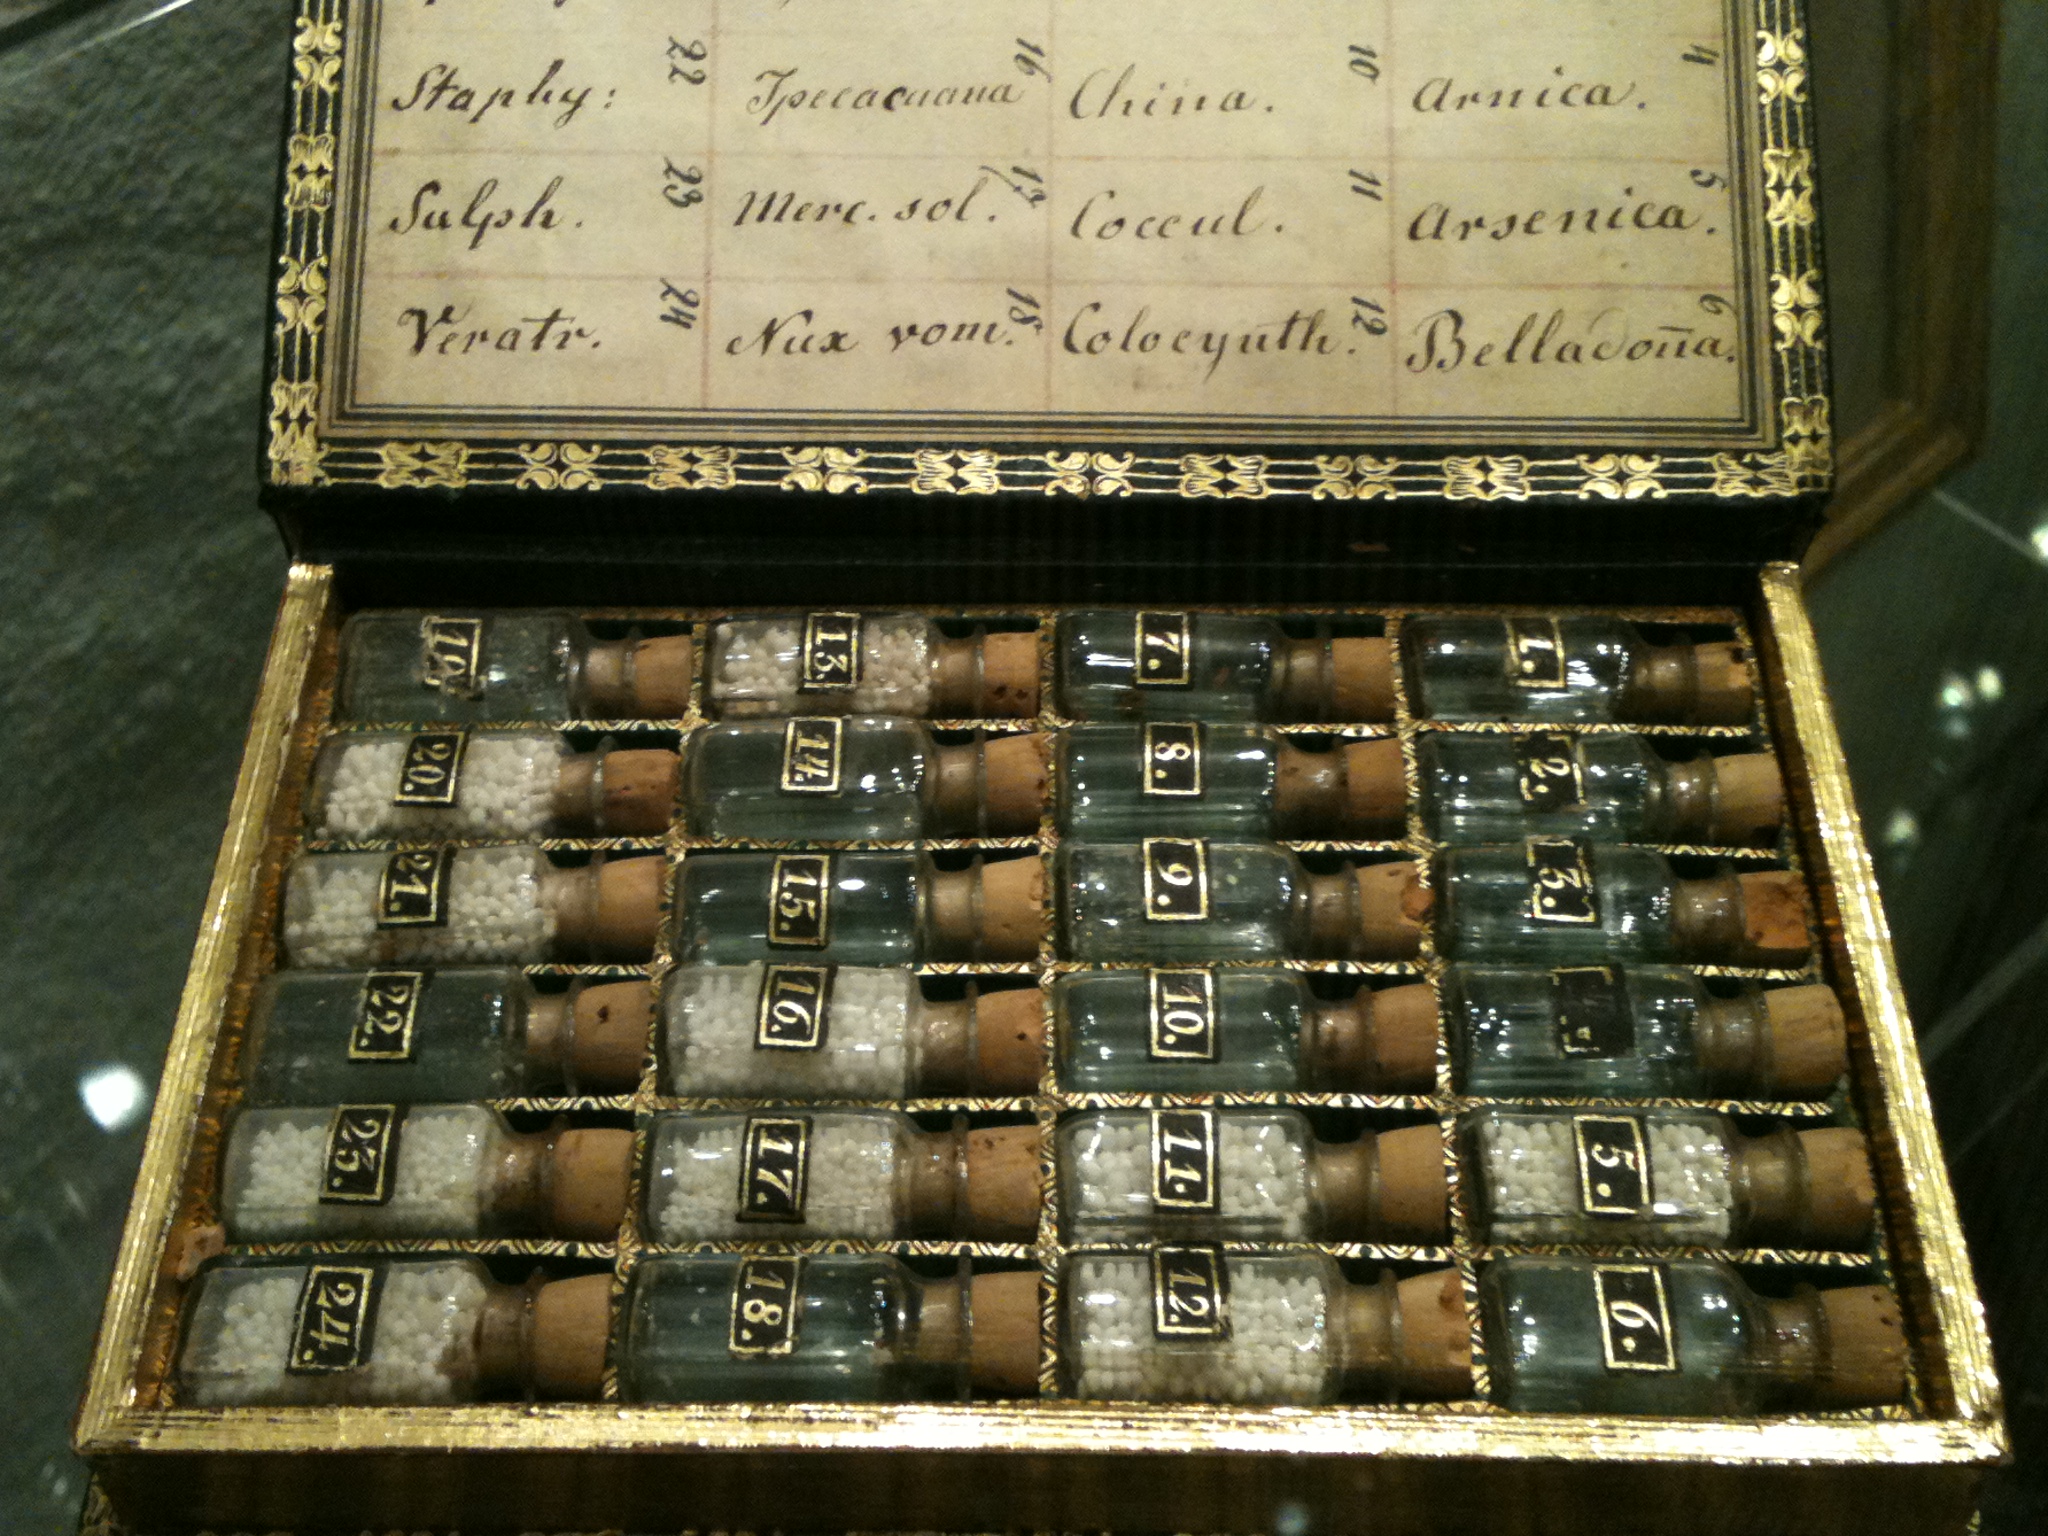 22 16 10 4
Staphy: Ipecacuana China. Arnica.
23 17 11 5
Sulph. Merc. sol. Coccul. Arsenica.
24 18 12 6
Veratr. Nux vom. Colocynth. Belladon̄a.
19. 13. 7. 1.
20. 14. 8. 2.
21. 15. 9. 3.
22. 16. 10.
23. 17. 11. 5.
24. 18. 12. 6.